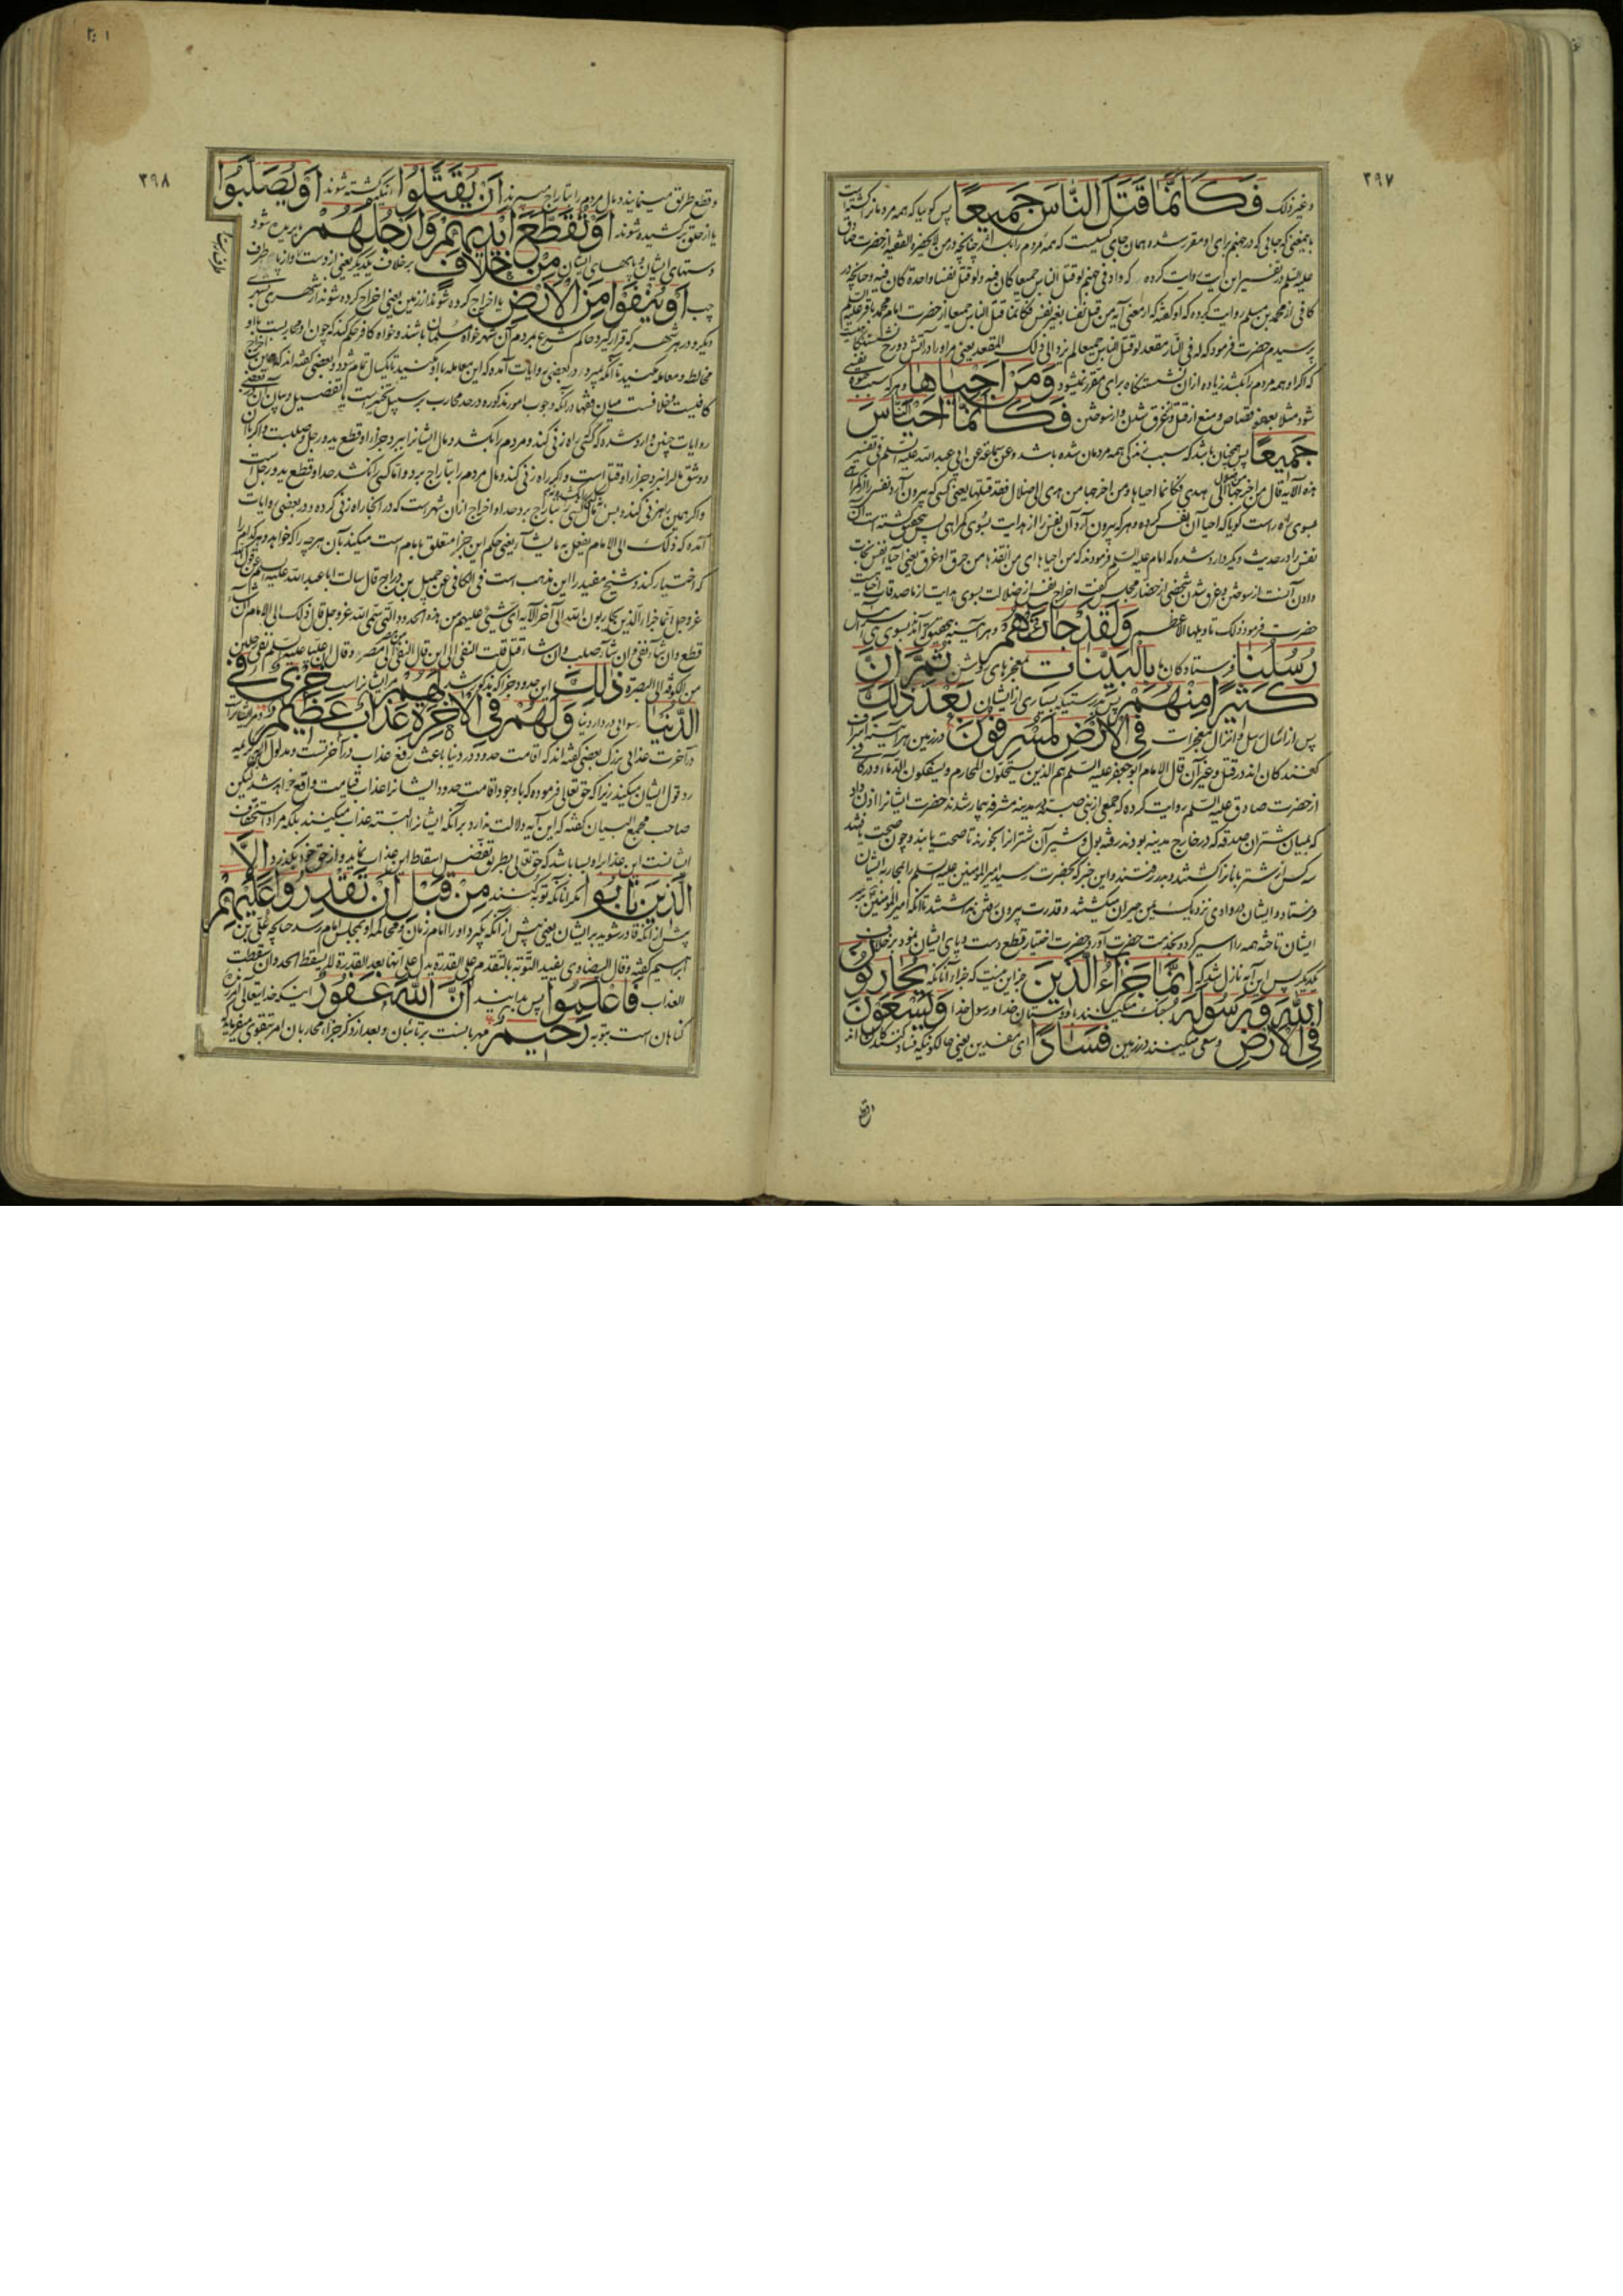 ۳۹۷
و غیر ذلک فَكَاَنَّمَا قَتَلَ النَّاسَ جَمیعًا پس کویا که همه مردمانرا کشته است
علیه السلم در تفسیر این آیت روایت کرده که واد فی جهنم لو قتل الناس جمیعا کان فیه ولو قتل نفسا واحدة کان فیه و چنانچه در
کافی از محمد بن مسلم روایت کرده که او کفته که از معنی آیه من قتل نفسا بغیر نفس فکانما قتل الناس جمیعا از حضرت امام محمد باقر علیه السلم
پرسیدم حضرت فرمود که له فی النار مقعد لو قتل الناس جمیعا لم یزد الی ذلک المقعد یعنی مراورا در آتش دوزخ
که اکر او همه مردم را بکشد زیاده از ان نشستکاه برای مقرر نمیشود وَمَنْ اَحْیَاهَا و هر که سبب
شود مثلا بعفو قصاص و منع از قتل و غرق شدن و از سوختن فَكَاَنَّمَا اَحْیَا النَّاسَ
جَمیعًا پس همچنان باشد که سبب زندکی همه مردمان شده باشد و عن سماعة عن ابی عبد الله علیه السلم فی تفسیر
هذه الآیه قال من اخرجها من ضلال الی هدی فکانما احیاها و من اخرجها من هدی الی ضلال فقد قتلها یعنی کسی که بیرون آرد نفسی را از کمراهی
بسوی راه راست کویا که احیا آن نفس کرده و هر که بیرون آرد آن نفس را از هدایت بسوی کمراهی پس بتحقیق کشته است آن
نفس را و در حدیث دیکر وارد شده که امام علیه السلم فرمودند که من احیاها ای من انقذها من حرق او غرق یعنی احیا نفس نجات
دادن آنست از سوختن و غرق شدن شخصی از حضار مجلس کفت اخراج نفس از ضلالت بسوی هدایت
حضرت فرمود ذلک تاویلها الاعظم وَلَقَدْ جَاءَتْهُمْ و هر آینه بتحقیق آمد بسوی بنی اسرائیل
رُسُلُنَا فرستادکان ما بِالْبَیِّنَاتِ بمعجزهای روشن ثُمَّ اِنَّ
كَثیرًا مِنْهُمْ پس بدرستیکه بسیاری از ایشان بَعْدَ ذٰلِكَ
پس از ارسال رسل و انزال معجزات فِی الْاَرْضِ لَمُسْرِفُونَ در زمین هر آینه اسراف
کنندکان اند در قتل و غیر آن قال الامام ابو جعفر علیه السلم هم الذین یستحلون المحارم و یسفکون الدماء و در کافی
از حضرت صادق علیه السلم روایت کرده که جمعی از بنی ضبه در مدینه مشرفه بیمار شدند حضرت ایشانرا اذن داد
که بمیان شتران صدقه که در خارج مدینه بودند رفته بول و شیر آن شترانرا بخورند تا صحت یابند و چون صحت یافتند
سه کس از شتربانانرا کشتند و بدر رفتند و این خبر که بحضرت رسید امیر المؤمنین علیه السلم را بمحاربه ایشان
فرستاد و ایشان در وادی نزدیک بیمن حیران میکشتند و قدرت بیرون رفتن نداشتند تا آنکه امیر المؤمنین بر سر
ایشان تاخته همه را اسیر کرد و بخدمت حضرت آورد و حضرت اختیار قطع دست و پای ایشان نمود بر خلاف
یکدیکر پس این آیه نازل شد که اِنَّمَا جَزَاءُ الَّذینَ جز این نیست که جزاء آنانکه یُحَارِبُونَ
اللّٰهَ وَرَسُولَهُ جنک میکنند با دوستان خدا و رسول خدا وَیَسْعَوْنَ
فِی الْاَرْضِ و سعی میکنند در زمین فَسَادًا ای مفسدین یعنی حالکونیکه فساد کنندکان اند
و قطع
۳۹۸
و قطع طریق مینمایند و مال مردم را بتاراج میبرند اَنْ یُقَتَّلُوا آنکه کشته شوند اَوْ یُصَلَّبُوا
یا از حلق بر کشیده شوند اَوْ تُقَطَّعَ اَیْدیهِمْ وَاَرْجُلُهُمْ یا بریده شود
دستهای ایشان و پایهای ایشان مِنْ خِلَافٍ بر خلاف یکدیکر یعنی از دست راست و از پا طرف
چپ اَوْ یُنْفَوْا مِنَ الْاَرْضِ یا اخراج کرده شوند از زمین یعنی اخراج کرده شوند از شهری بشهری
دیکر و در هر شهر که قرار کیرد حاکم شرع بمردم آن شهر خواه مسلمان باشند و خواه کافر حکم کند که چون او محاربست با او
مخالطه و معامله مکنید تا آنکه بمیرد و در بعضی روایات آمده که این معامله با او بکنید تا یکسال تمام شود و بعضی کفته اند که همین اخراج
کافیست و خلافست میان فقها در آنکه وجوب امور مذکوره در حد محارب بر سبیل تخییر است یا تفصیل و بیان آن
روایات چنین وارد شده که کسی راه زنی کند و مردم را بکشد و مال ایشانرا ببرد جزاء او قطع ید و رجل و صلبست و اکر
و شق مال را نبرد جزاء او قتل است و اکر راه زنی کند و مال مردم را بتاراج برد و اما کسی را نکشد حد او قطع ید و رجل است
و اکر همین راهزنی کند و بس حد او اخراج از ان شهر است که در انجا راه زنی کرده و در بعضی روایات
آمده که ذلک الی الامام یفعل به ما یشاء یعنی حکم این جزا متعلق بامام است میکند بآن هر چه را که خواهد و هر کدام را
که اختیار کند و شیخ مفید را این مذهب است فی الکافی عن جمیل بن دراج قال سالت ابا عبد الله علیه السلم عن قول الله
عز و جل انما جزاء الذین یحاربون الله الی آخر الآیه ای شیء علیهم من هذه الحدود التی سمی الله عز و جل قال ذلک الی الامام ان شاء
قطع و ان شاء نفی و ان شاء صلب و ان شاء قتل قلت النفی الی این قال النفی من مصر الی مصر و قال ان علیا علیه السلم نفی رجلین
من الکوفة الی البصرة ذٰلِكَ این حدود جزا که مذکور شد لَهُمْ مر ایشانراست خِزْیٌ فِی
الدُّنْیَا رسوائی در دار دنیا وَلَهُمْ فِی الْاٰخِرَةِ عَذَابٌ عَظیمٌ و مر ایشانراست
در آخرت عذابی بزرک بعضی کفته اند که اقامت حدود در دنیا باعث رفع عذاب در آخرتست و مدلول این آیه
رد قول ایشان میکند زیرا که حق تعالی فرموده که با وجود اقامت حدود ایشانرا عذاب قیامت واقع خواهد شد لیکن
صاحب مجمع البیان کفته که این آیه دلالت ندارد بر آنکه ایشانرا البته عذاب میکنند بلکه مراد استحقاق
ایشانست این عذابرا و بسا باشد که حق تعالی بطریق تفضل اسقاط این عذاب نماید و از حق خود بکذرد اِلَّا
الَّذینَ تَابُوا مکر آنانکه توبه کنند مِنْ قَبْلِ اَنْ تَقْدِرُوا عَلَیْهِمْ
پیش از آنکه قادر شوید بر ایشان یعنی پیش از آنکه بکیرد او را امام زمان و محاکمه او بمجلس امام رسد چنانچه علی بن
ابراهیم کفته و قال البیضاوی یقید التوبة بالتقدم علی القدرة یدل علی انها بعد القدرة لا یسقط الحد و ان اسقطت
العذاب فَاعْلَمُوا پس بدانید اَنَّ اللّٰهَ غَفُورٌ اینکه خدایتعالی آمرزنده
کناهان است بتوبه رَحیمٌ مهربانست بر تائبان و بعد از ذکر جزاء محاربان امر بتقوی میفرماید